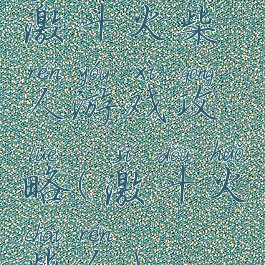 激斗火柴
rén yóu xì gōng
人游戏攻
lüè jī dòu huǒ
略(激斗火
chái rén
柴人)